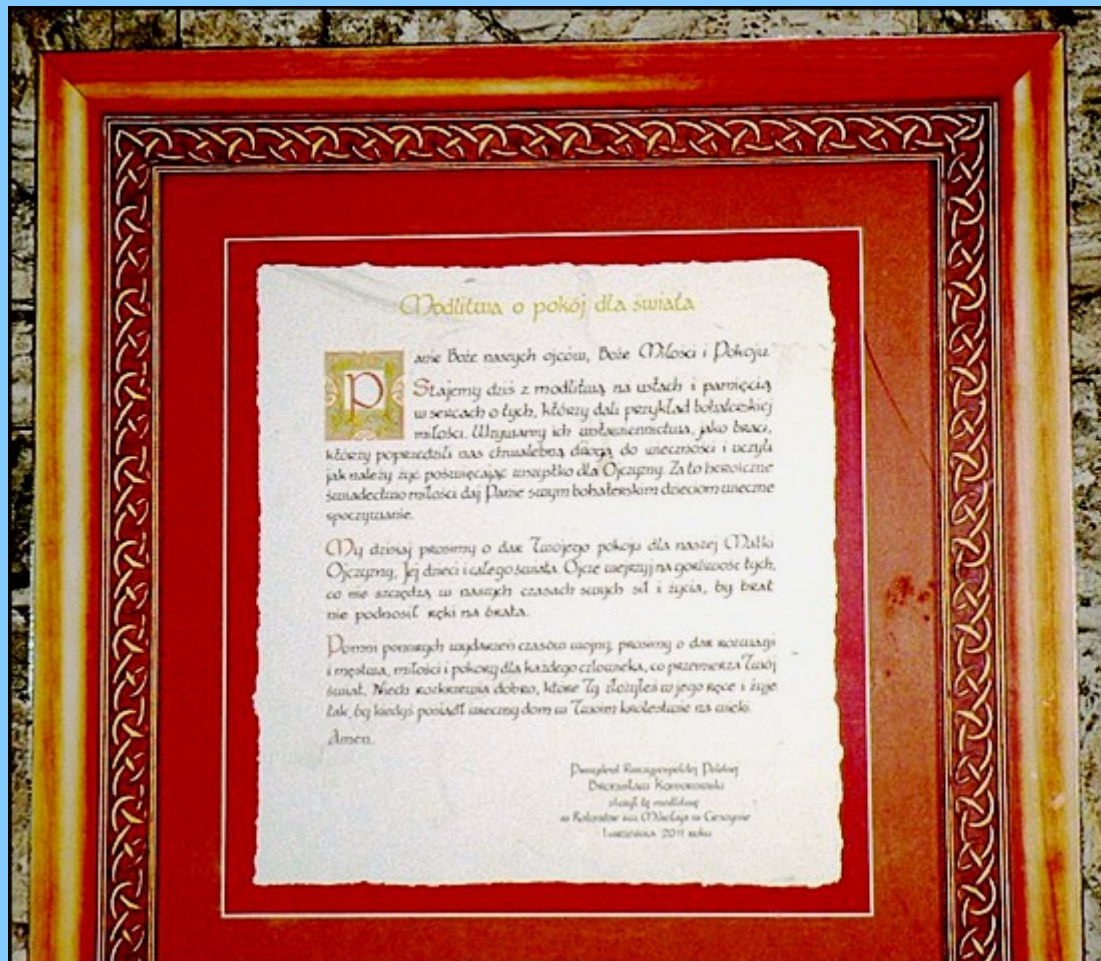 Modlitwa o pokój dla świata
Panie Boże naszych ojców, Boże Miłości i Pokoju.
Stajemy dziś z modlitwą na ustach i pamięcią
w sercach o tych, którzy dali przykład bohaterskiej
miłości. Wzywamy ich wstawiennictwa, jako braci,
którzy poprzedzili nas chwalebną drogą do wieczności i uczyli
jak należy żyć poświęcając wszystko dla Ojczyzny. Za to heroiczne
świadectwo miłości daj Panie swym bohaterskim dzieciom wieczne
spoczywanie.
My dzisiaj prosimy o dar Twojego pokoju dla naszej Matki
Ojczyzny, Jej dzieci i całego świata. Ojcze wejrzyj na gorliwość tych,
co nie szczędzą w naszych czasach swych sił i życia, by brat
nie podnosił ręki na brata.
Pomni ponurych wydarzeń czasów wojny, prosimy o dar rozwagi
i męstwa, miłości i pokory dla każdego człowieka, co przemierza Twój
świat. Niech rozkrzewia dobro, które Ty złożyłeś w jego ręce i żyje
tak, by kiedyś posiadł wieczny dom w Twoim królestwie na wieki.
Amen.
Prezydent Rzeczypospolitej Polskiej
Bronisław Komorowski
złożył tę modlitwę
w Rotundzie św. Mikołaja w Cieszynie
1 września 2011 roku